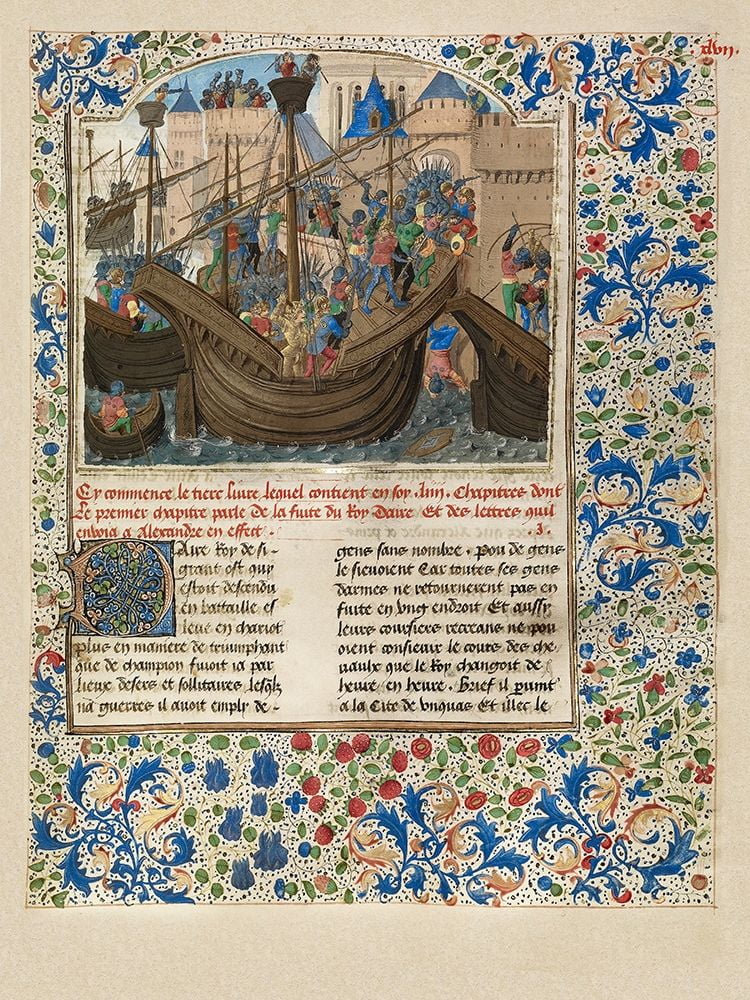 xlvij.
Cy commence le tiers livre lequel contient en soy .iiii. Chapitres dont
Le premier chapitre parle de la fuite du Roy Daire Et des lettres quil
envoia a Alexandre en effect . .I.
Daire Roy de si
grant ost quy
estoit descendu
en bataille es
leve en chariot
plus en maniere de triumphant
que de champion fuioit ia par
lieux desers et sollitaires lesqlz
na guerres il avoit emply de
gens sans nombre . pou de gens
le sievoient Car toutes ses gens
darmes ne retournerent pas en
fuite en vng endroit Et aussy
leurs coursiers recreans ne pou
oient consievir le cours des che
vaulx que le Roy changoit de
heure en heure . Brief il pvint
a la Cite de vnquas Et illec le